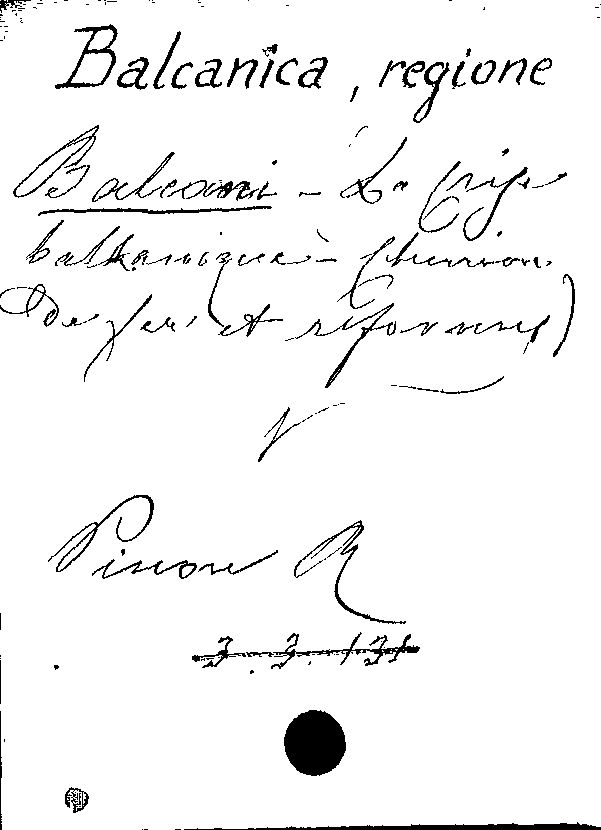 Balcanica, regione
Balcani - La crise
balkanique - (chemins
de fer et réformes)
V
Pinon R
3.3.131